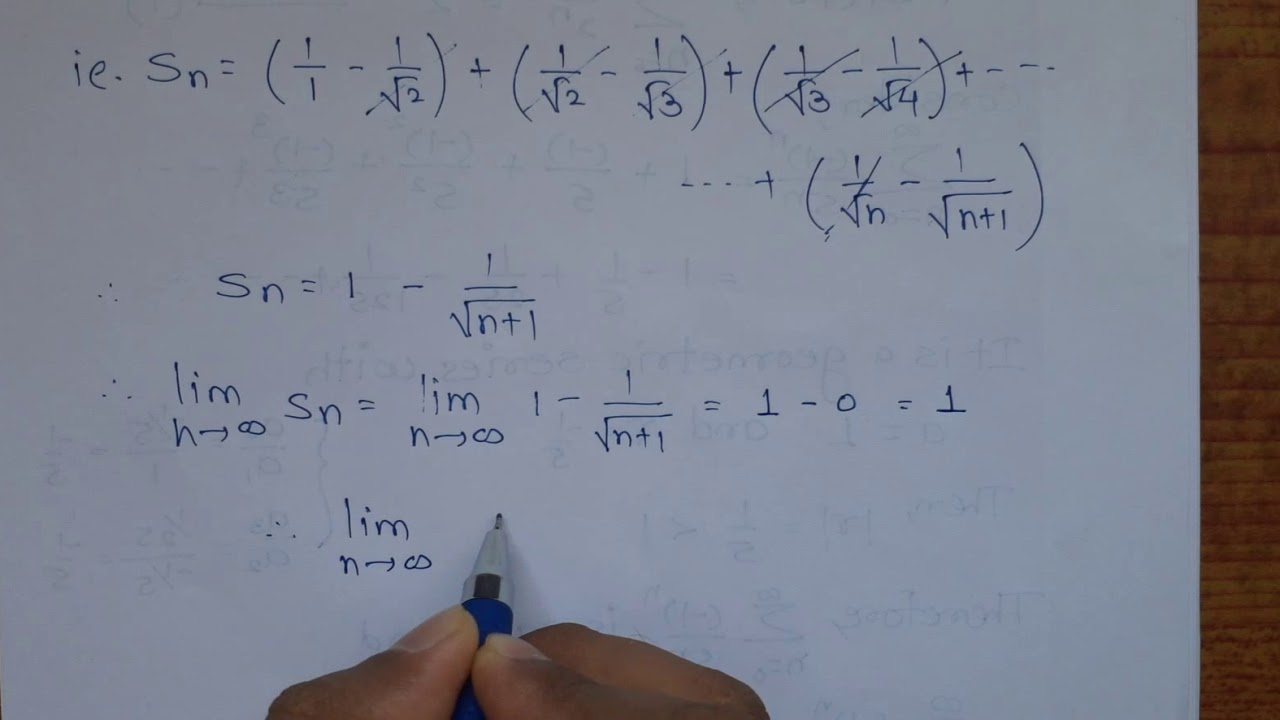 ie. Sn = (1/1 - 1/√2) + (1/√2 - 1/√3) + (1/√3 - 1/√4) + ----
--- + (1/√n - 1/√n+1)
∴ Sn = 1 - 1/√n+1
∴ lim n→∞ Sn = lim n→∞ 1 - 1/√n+1 = 1 - 0 = 1
∴ lim n→∞